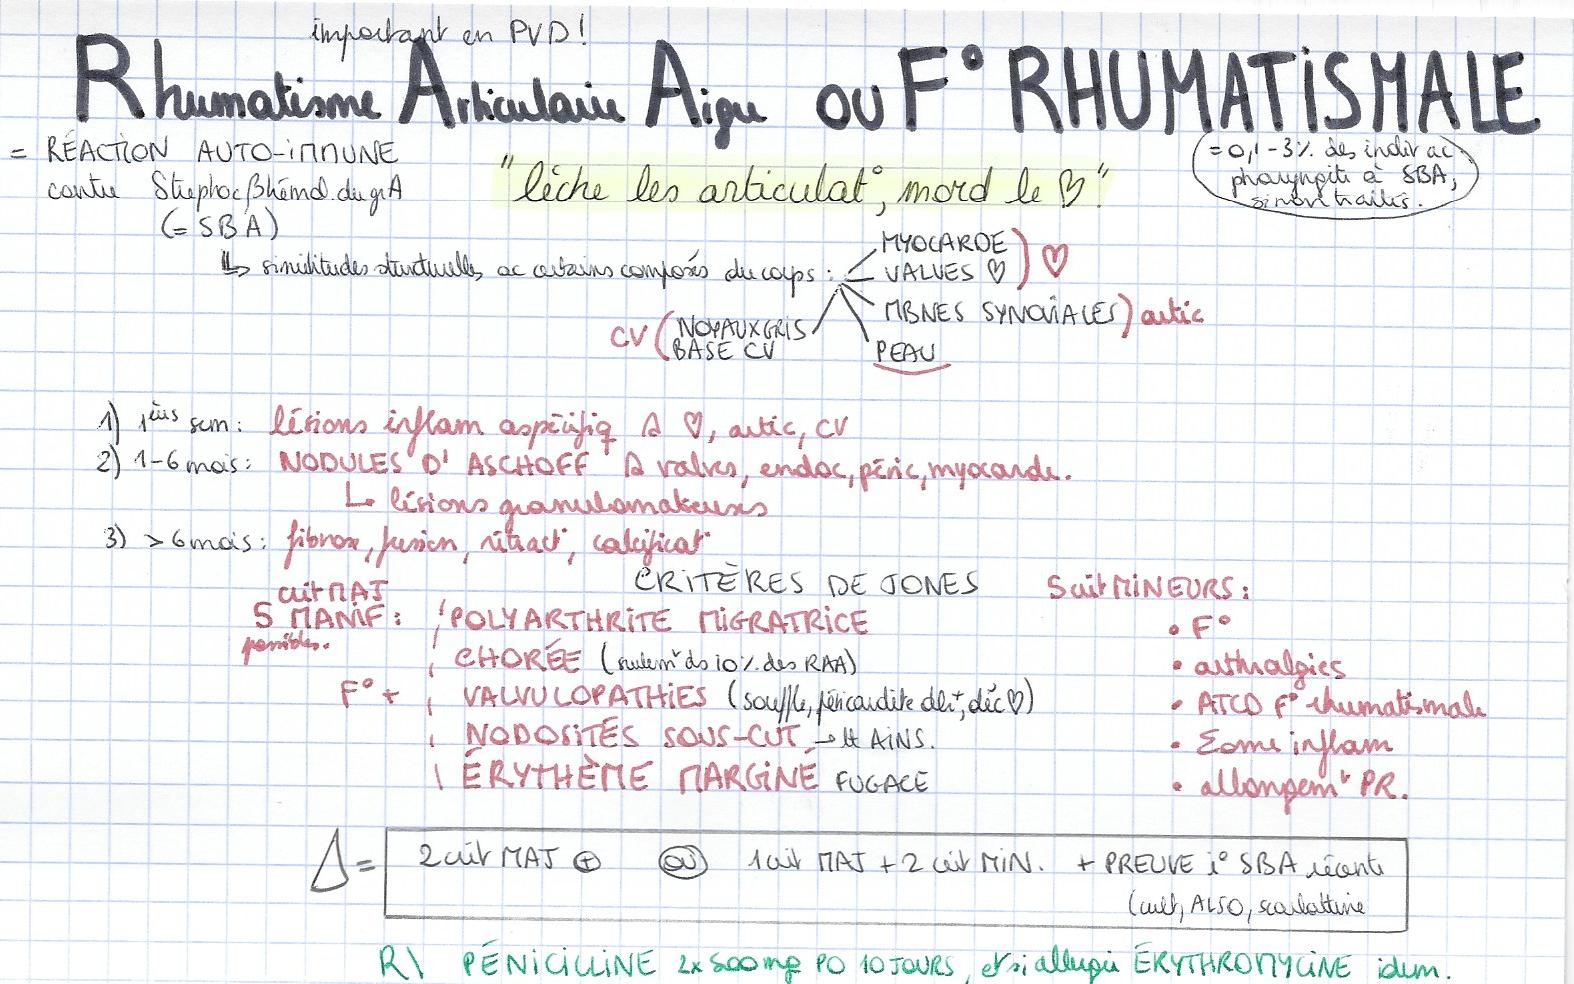 important en PVD!
Rhumatisme Articulaire Aigu ou F° RHUMATISMALE
= RÉACTION AUTO-IMMUNE
contre Streptoc βhémol. du grA
(= SBA)
"lèche les articulat°, mord le ♡"
= 0,1-3% des indiv ac
pharyngite à SBA,
si non traités.
↳ similitudes structurelles ac certains composés du corps :
MYOCARDE
VALVES ♡
) ♡
MBNES SYNOVIALES ) artic
CV ( NOYAUX GRIS
BASE CV
PEAU
1) 1ères sem : lésions inflam aspécifiq ♡, artic, CV
2) 1-6 mois : NODULES D'ASCHOFF valves, endoc, péric, myocarde.
↳ lésions granulomateuses
3) > 6 mois : fibrose, fusion, rétract°, calcificat°
CRITÈRES DE JONES
crit MAJ
5 MANIF :
possibles.
F° +
POLYARTHRITE MIGRATRICE
CHORÉE (seulemt ds 10% des RAA)
VALVULOPATHIES (souffle, péricardite, déc ♡)
NODOSITÉS SOUS-CUT → AINS.
ÉRYTHÈME MARGINÉ FUGACE
5 crit MINEURS :
• F°
• arthralgies
• ATCD F° rhumatismale
• Σome inflam
• allongemt PR.
Δ = 2 crit MAJ ⊕ OU 1 crit MAJ + 2 crit MIN. + PREUVE i° SBA récente
(cult, ALSO, scarlattine
R\ PÉNICILLINE 2x500mg PO 10 JOURS, et si allergie ÉRYTHROMYCINE idem.